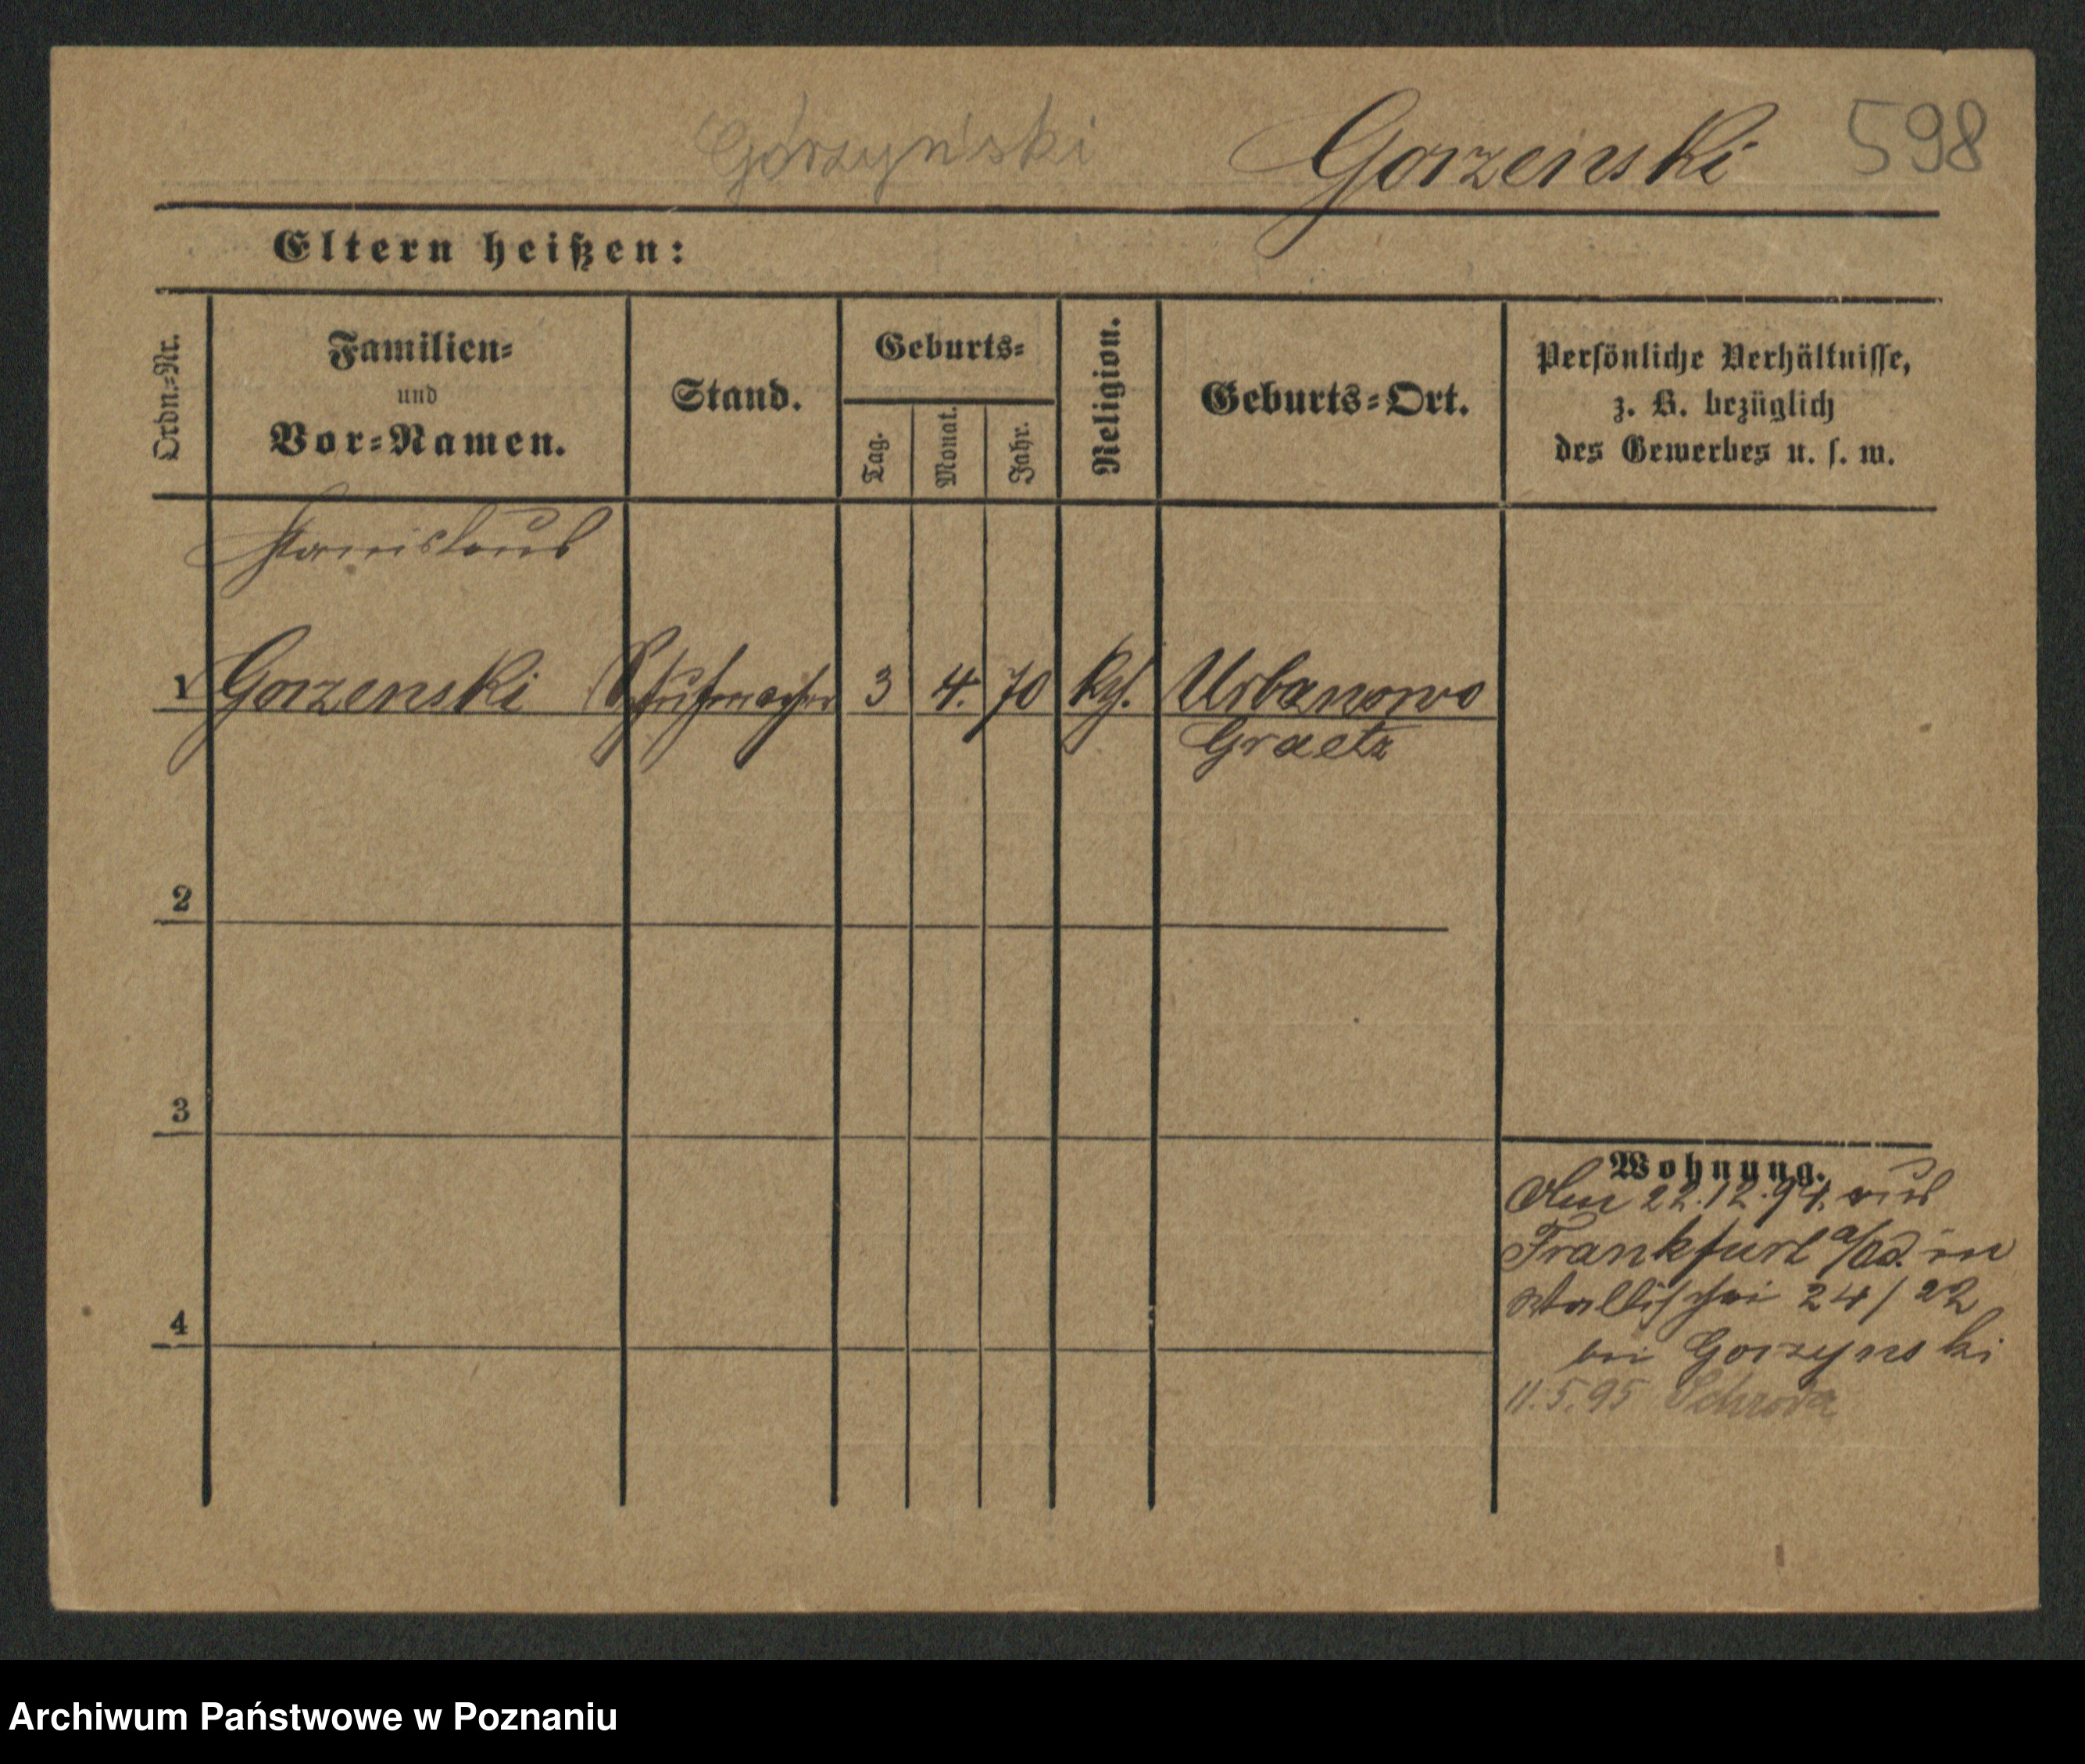 Górzyński Gorzenski 598
Eltern heißen:
Ordn.=Nr.
Familien=
und
Vor=Namen.
Stand.
Geburts=
Tag.
Monat.
Jahr.
Religion.
Geburts=Ort.
Persönliche Verhältnisse,
z. B. bezüglich
des Gewerbes u. s. w.
Stanislaus
1 Gorzenski Schuhmacher 3 4. 70 kth. Urbanowo
Graetz
2
3
4
Wohnung.
Am 22.12.94. aus
Frankfurt a/Od. in
Wallischei 24/22
bei Gorzynski
11.5.95 Schroda
Archiwum Państwowe w Poznaniu